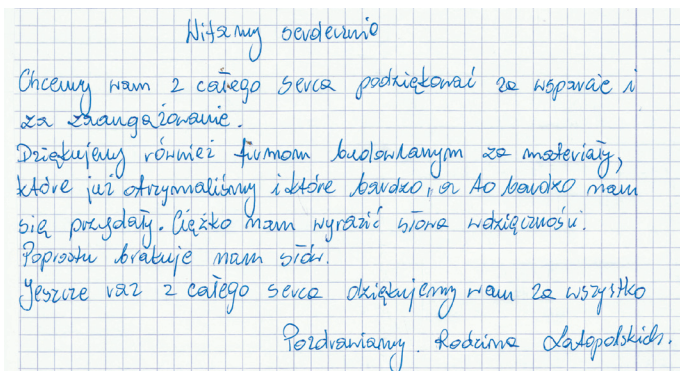 Witamy serdecznie
Chcemy wam z całego serca podziękować za wsparcie i
za zaangażowanie.
Dziękujemy również firmom budowlanym za materiały,
które już otrzymaliśmy i które bardzo, a to bardzo nam
się przydały. Ciężko nam wyrazić słowa wdzięczności.
Poprostu brakuje nam słów.
Jeszcze raz z całego serca dziękujemy wam za wszystko
Pozdrawiamy. Rodzina Latopolskich.